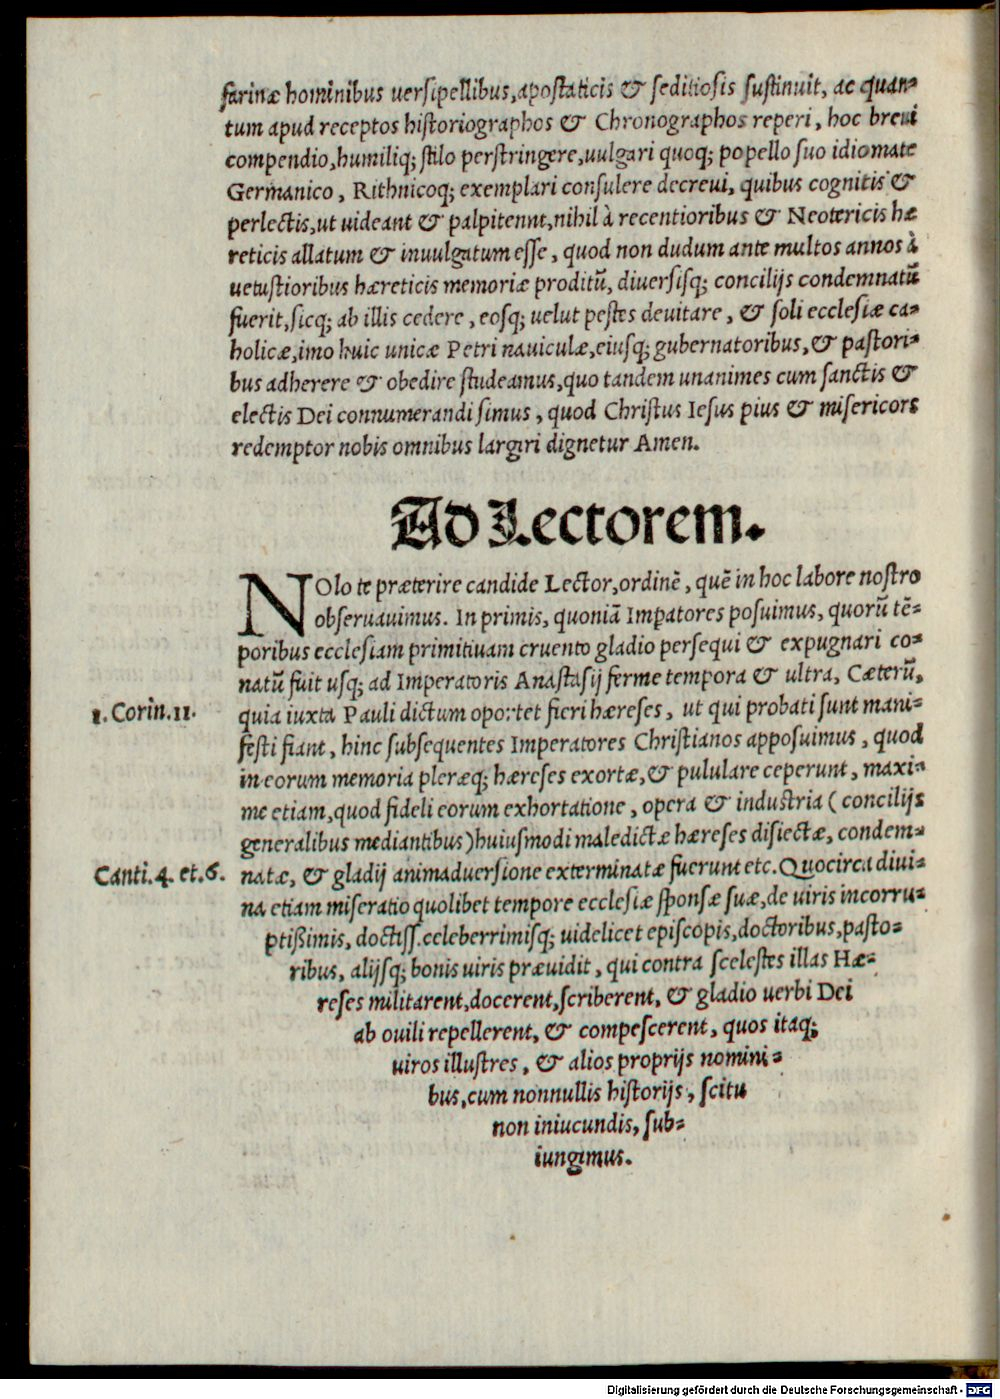 farinæ hominibus uersipellibus, apostaticis & seditiosis sustinuit, ac quan-
tum apud receptos historiographos & Chronographos reperi, hoc breui
compendio, humiliq; stilo perstringere, uulgari quoq; popello suo idiomate
Germanico, Rithnicoq; exemplari consulere decreui, quibus cognitis &
perlectis, ut uideant & palpitennt, nihil à recentioribus & Neotericis hæ
reticis allatum & inuulgatum esse, quod non dudum ante multos annos à
uetustioribus hæreticis memoriæ proditũ, diuersisq; concilijs condemnatũ
fuerit, sicq; ab illis cedere, eosq; uelut pestes deuitare, & soli ecclesiæ ca-
holicæ, imo huic unicæ Petri nauiculæ, eiusq; gubernatoribus, & pastori-
bus adherere & obedire studeamus, quo tandem unanimes cum sanctis &
electis Dei connumerandi simus, quod Christus Iesus pius & misericors
redemptor nobis omnibus largiri dignetur Amen.
Ad Lectorem.
NOlo te præterire candide Lector, ordinẽ, quẽ in hoc labore nostro
obseruauimus. In primis, quoniã Impatores posuimus, quorũ tẽ-
poribus ecclesiam primitiuam cruento gladio persequi & expugnari co-
natũ fuit usq; ad Imperatoris Anastasij ferme tempora & ultra, Cæterũ,
1. Corin. 11.
quia iuxta Pauli dictum oportet fieri hæreses, ut qui probati sunt mani-
festi fiant, hinc subsequentes Imperatores Christianos apposuimus, quod
in eorum memoria pleræq; hæreses exortæ, & pululare ceperunt, maxi-
me etiam, quod fideli eorum exhortatione, opera & industria (concilijs
generalibus mediantibus) huiusmodi maledictæ hæreses disiectæ, condem-
Canti. 4. et. 6.
natæ, & gladij animaduersione exterminatæ fuerunt etc. Quocirca diui-
na etiam miseratio quolibet tempore ecclesiæ sponsæ suæ, de uiris incorru-
ptißimis, doctiss. celeberrimisq; uidelicet episcopis, doctoribus, pasto-
ribus, alijsq; bonis uiris præuidit, qui contra scelestes illas Hæ-
reses militarent, docerent, scriberent, & gladio uerbi Dei
ab ouili repellerent, & compescerent, quos itaq;
uiros illustres, & alios proprijs nomini-
bus, cum nonnullis historijs, scitu
non iniucundis, sub-
iungimus.
Digitalisierung gefördert durch die Deutsche Forschungsgemeinschaft - DFG